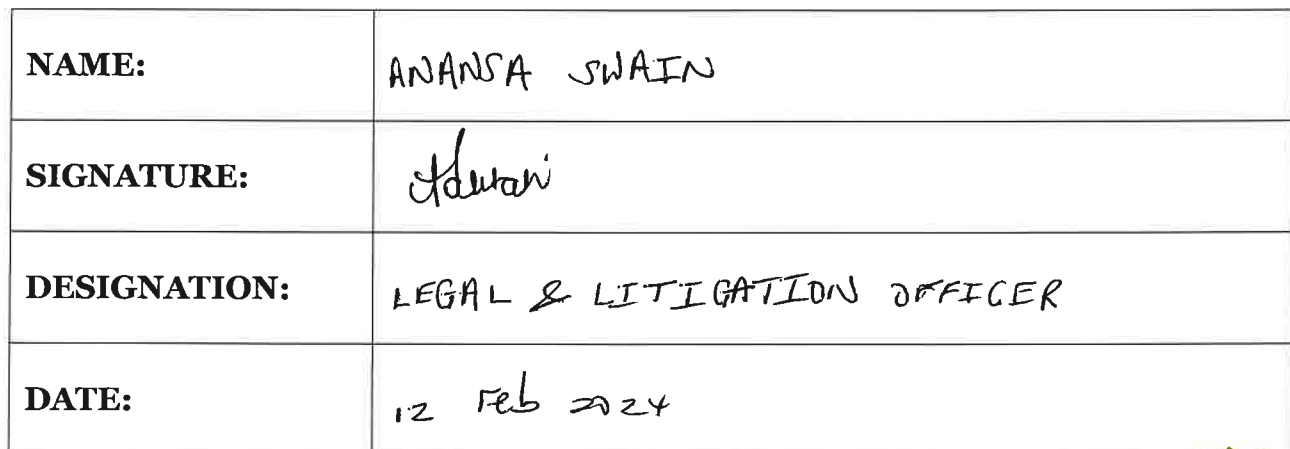 NAME: ANANSA SWAIN
SIGNATURE:
DESIGNATION: LEGAL & LITIGATION OFFICER
DATE: 12 Feb 2024